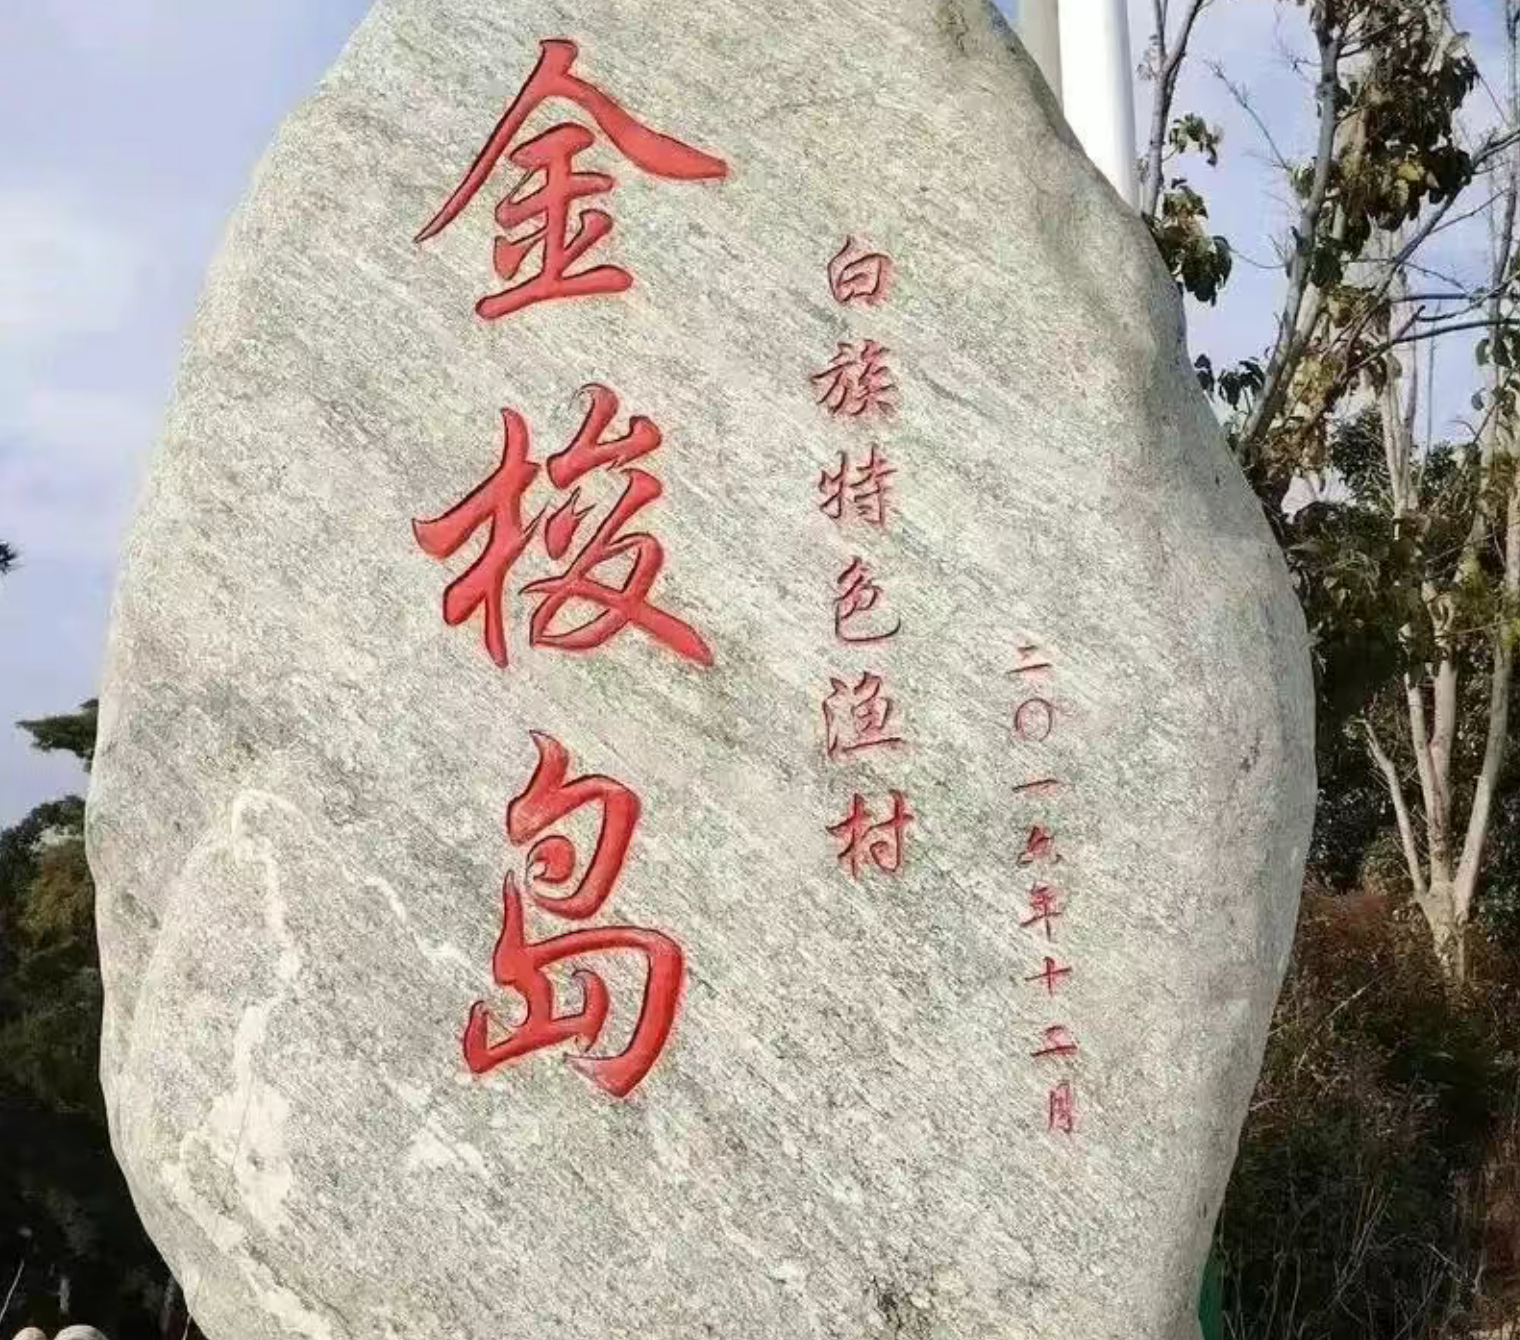 金梭岛
白族特色渔村
二〇一六年十二月